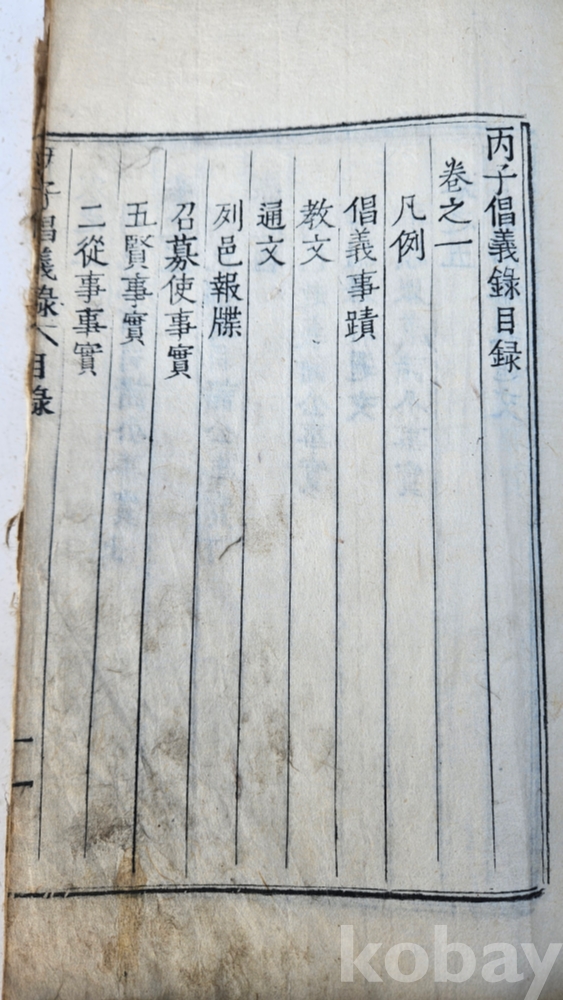 丙子倡義錄目録
卷之一
凡例
倡義事蹟
敎文
通文
列邑報牒
召募使事實
五賢事實
二從事事實
丙子倡義錄 目錄
kobay